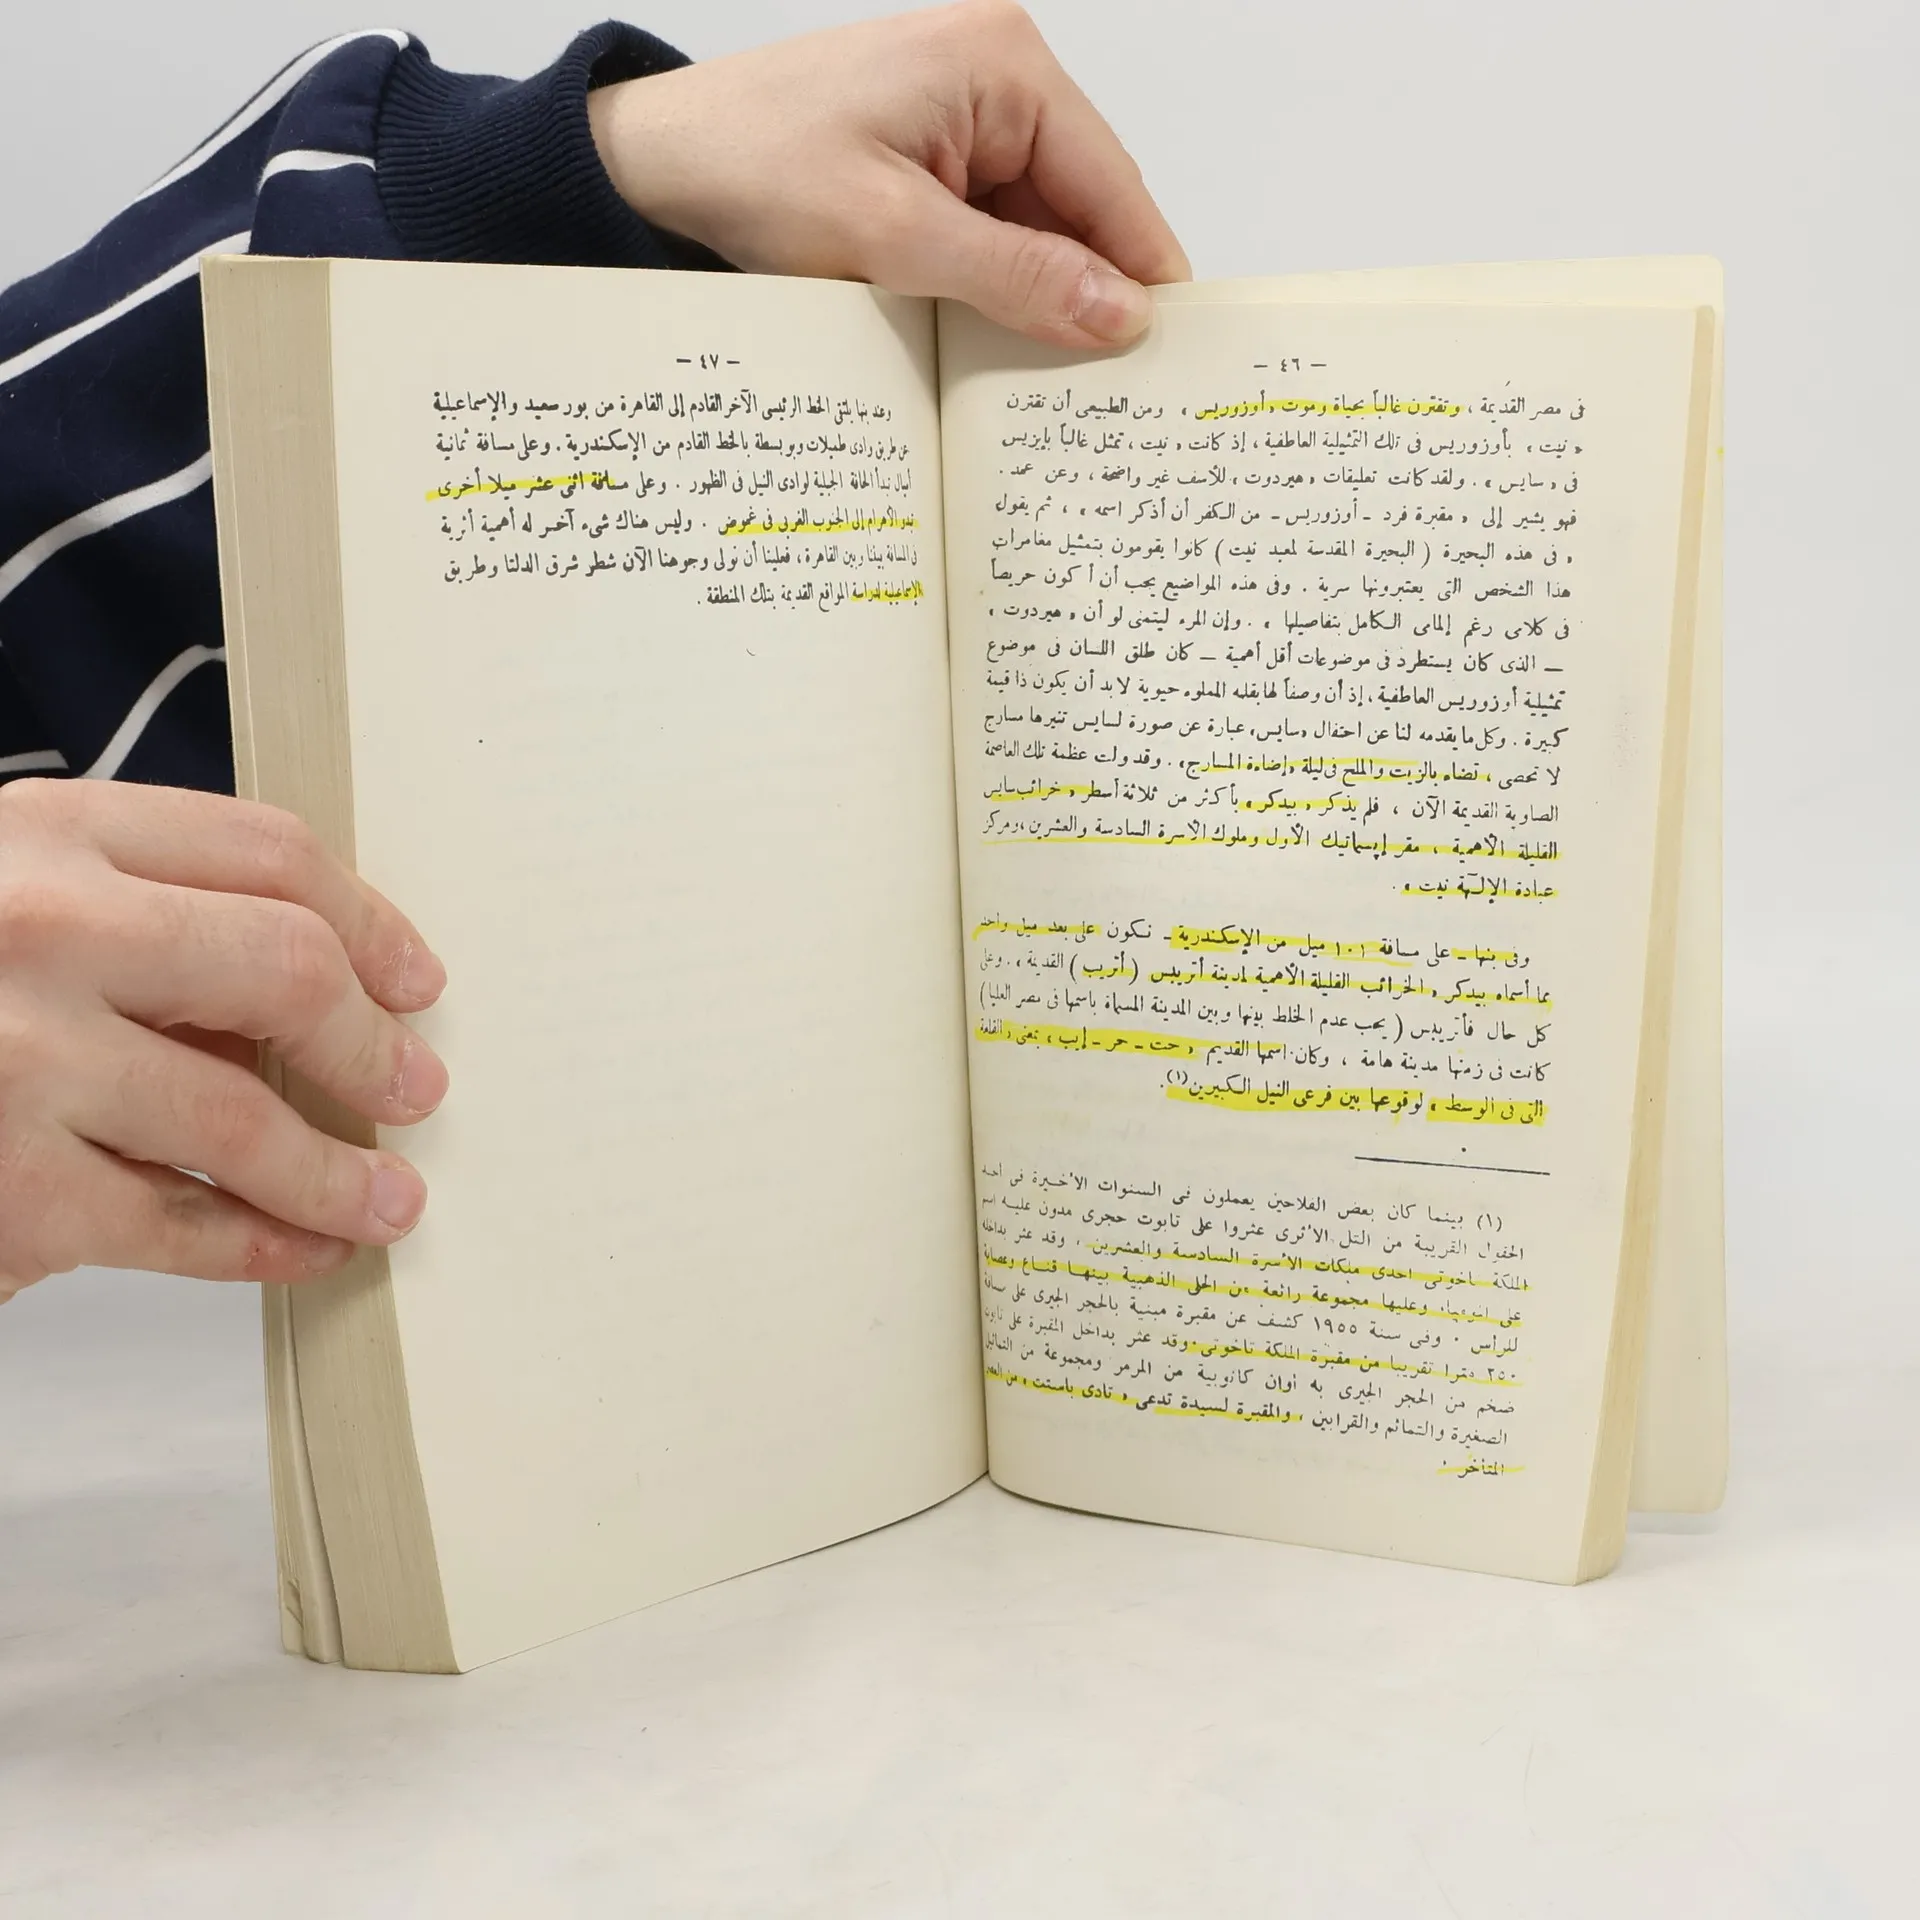 — ٤٦ —
فى مصر القديمة ، وتقترن غالباً بحياة وموت « أوزوريس » ومن الطبيعى أن تقترن
« نيت » بأوزوريس فى تلك التمثيلية العاطفية ، إذ كانت « نيت » تمثل غالباً بإيزيس
فى « سايس » . ولقد كانت تعليقات « هيردوت » للأسف غير واضحة ، وعن عمد .
فهو يشير إلى « مقبرة فرد ـ أوزوريس ـ من الكفر أن أذكر اسمه » ، ثم يقول
« فى هذه البحيرة ( البحيرة المقدسة لمعبد نيت ) كانوا يقومون بتمثيل مغامرات
هذا الشخص التى يعتبرونها سرية . وفى هذه المواضيع يجب أن أكون حريصاً
فى كلامى رغم إلمامى الكامل بتفاصيلها » . وإن المرء ليتمنى لو أن « هيردوت »
— الذى كان يستطرد فى موضوعات أقل أهمية — كان طلق اللسان فى موضوع
تمثيلية أوزوريس العاطفية ، إذ أن وصفاً لها بقلمه المملوء حيوية لابد أن يكون ذا قيمة
كبيرة . وكل ما يقدمه لنا عن احتفال « سايس » عبارة عن صورة لسايس تنيرها مسارج
لا تحصى ، تضاء بالزيت والملح فى ليلة « إضاءة المسارج » . وقد ولت عظمة تلك العاصمة
الصاوية القديمة الآن ، فلم يذكر « بيدكر » بأكثر من ثلاثة أسطر « خرائب سايس
القليلة الأهمية ، مقر إپسماتيك الأول وملوك الأسرة السادسة والعشرين ، ومركز
عبادة الإلهة نيت » .
وفى بنها ـ على مسافة ١٠١ ميل من الإسكندرية ـ نكون على بعد ميل واحد
مما أسماه بيدكر « الخرائب القليلة الأهمية لمدينة أتريبس ( أتريب ) القديمة » . وعلى
كل حال فأتريبس ( يجب عدم الخلط بينها وبين المدينة المسماة باسمها فى مصر العليا )
كانت فى زمنها مدينة هامة ، وكان اسمها القديم « حت ـ حر ـ إيب » بمعنى « القلعة
التى فى الوسط » لوقوعها بين فرعى النيل الكبيرين (١) .
(١) بينما كان بعض الفلاحين يعملون فى السنوات الأخيرة فى أحد
الحقول القريبة من التل الأثرى عثروا على تابوت حجرى مدون عليه اسم
الملكة تاخوتى احدى ملكات الأسرة السادسة والعشرين ، وقد عثر بداخله
على المومياء وعليها مجموعة رائعة من الحلى الذهبية بينها قناع وعصابة
للرأس . وفى سنة ١٩٥٥ كشف عن مقبرة مبنية بالحجر الجيرى على مسافة
٢٥٠ مترا تقريبا من مقبرة الملكة تاخوتى . وقد عثر بداخل المقبرة على تابوت
ضخم من الحجر الجيرى به أوان كانوبية من المرمر ومجموعة من التماثيل
الصغيرة والتمائم والقرابين ، والمقبرة لسيدة تدعى « تادى باستت » من العصر
المتأخر .
— ٤٧ —
وعند بنها يلتقى الخط الرئيسى الآخر القادم إلى القاهرة من بور سعيد والإسماعيلية
عن طريق وادى طميلات وبوبسطة بالخط القادم من الإسكندرية . وعلى مسافة ثمانية
أميال تبدأ الحافة الجبلية لوادى النيل فى الظهور . وعلى مسافة اثنى عشر ميلا أخرى
تبدو الأهرام إلى الجنوب الغربى فى غموض . وليس هناك شىء آخر له أهمية أثرية
فى المسافة بيننا وبين القاهرة ، فعلينا أن نولى وجوهنا الآن شطر شرق الدلتا وطريق
الإسماعيلية لدراسة المواقع القديمة بتلك المنطقة .